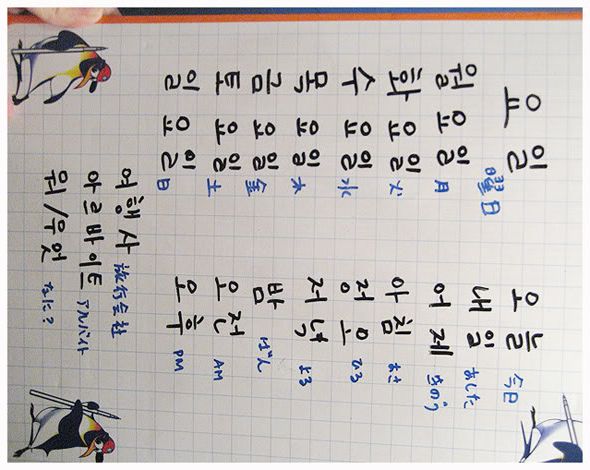 요일 曜日
월요일 月
화요일 火
수요일 水
목요일 木
금요일 金
토요일 土
일요일 日
오늘 今日
내일 あした
어제 きのう
아침 あさ
정오 ひる
저녁 よる
밤 ばん
오전 AM
오후 PM
여행사 旅行会社
아르바이트 アルバイト
뭐/무엇 なに?